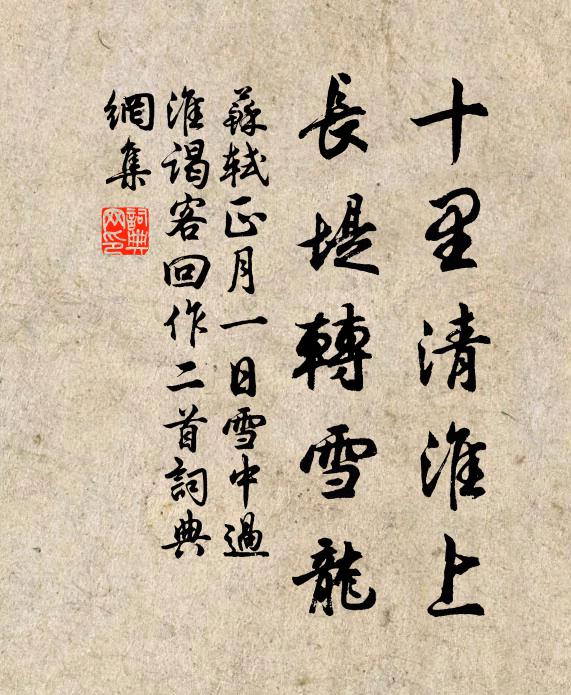 十里清淮上
長堤轉雪龍
蘇軾正月一日雪中過
淮謁客回作二首詞典
網集
詞典网印